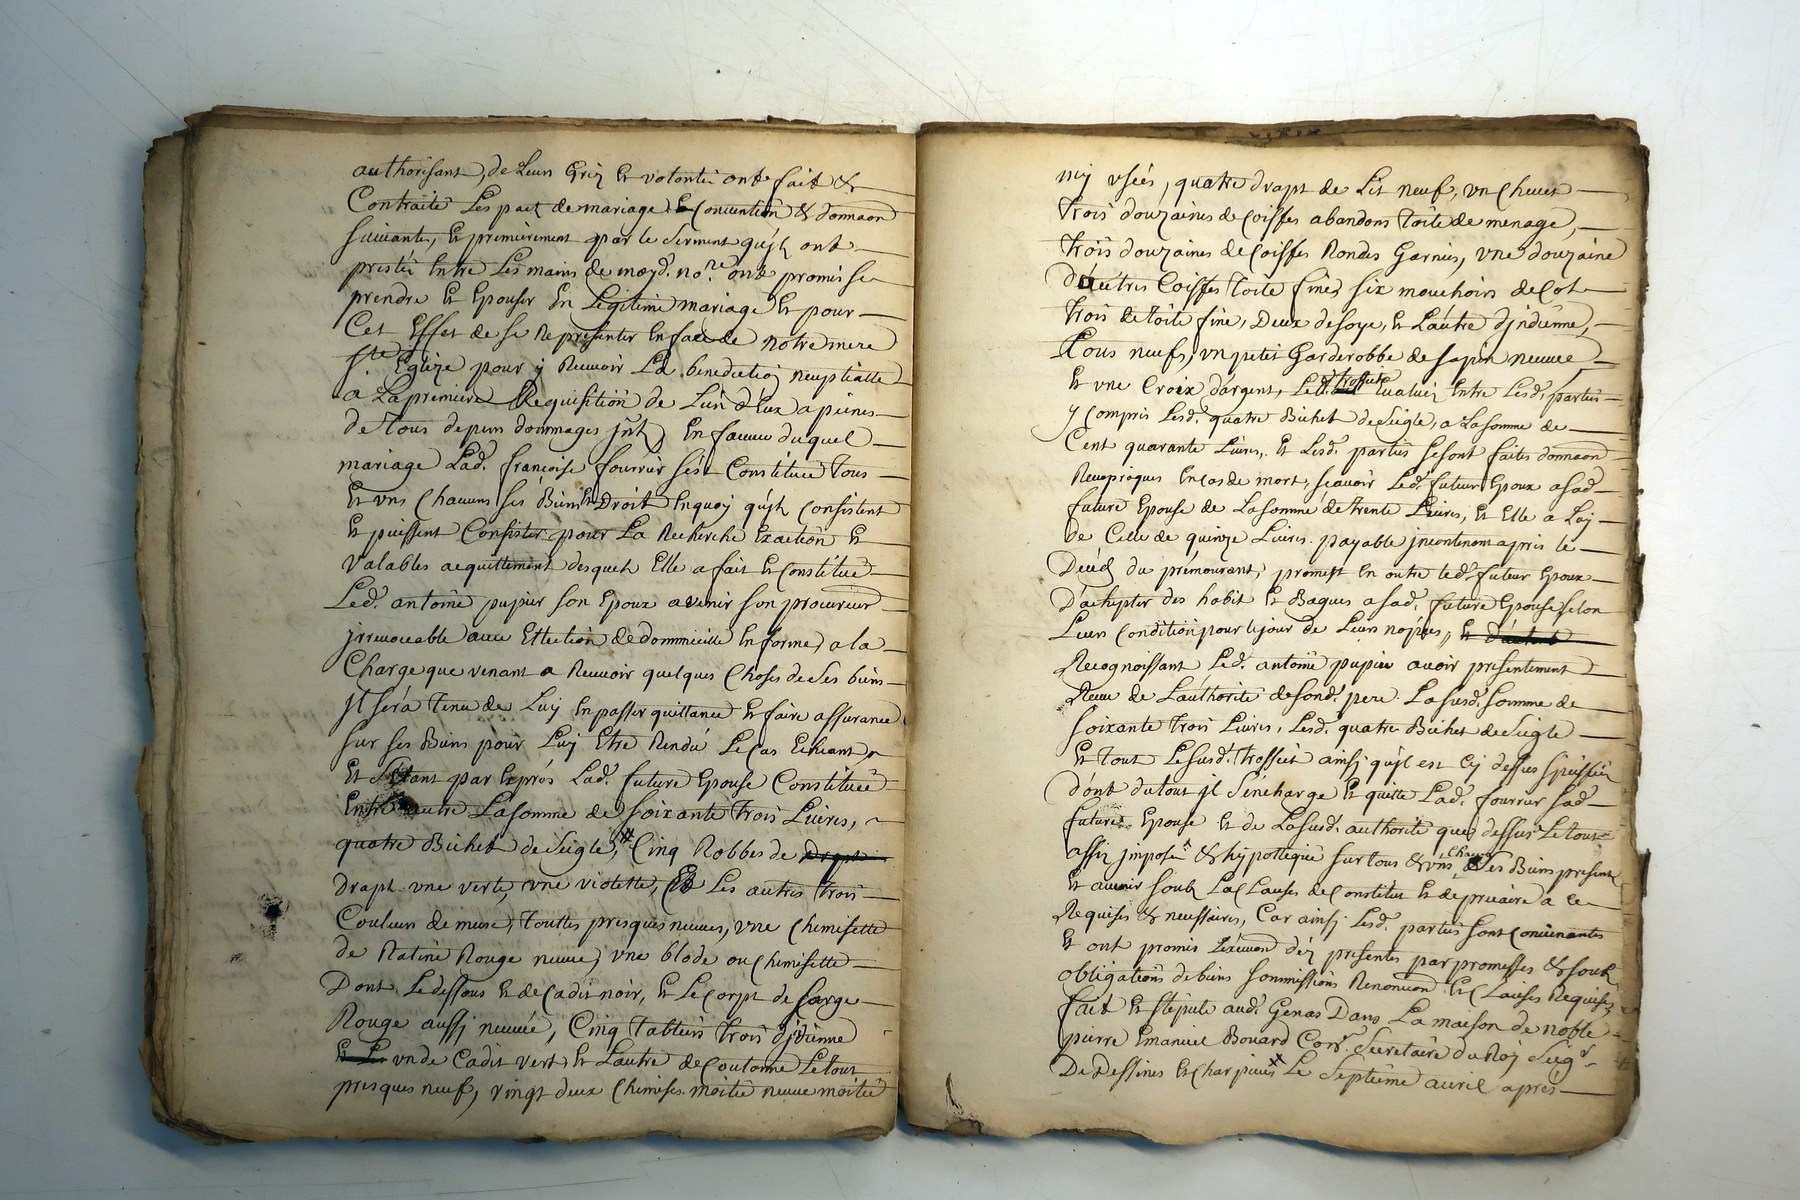 authorisant, de Leurs Gréz Et volontéz ont fait &
Contraité Les pact de mariage Convention & donnaon
suivante, Et premièrement par le serment qu'jls ont
prestéz Entre Les mains de moyd. no.re ont promis se
prendre Et Epouser En Légitime mariage Et pour
Cet Effet de se Représenter En face de notre mere
s.te Eglize pour y Recevoir La benediction nuptialle
a La premiere Requisition de L'un d'Eux a peines
de tous depens dommages jnt. En faveur duquel
mariage Lad. françoise fourrur s'est Constituée Tous
Et vns Chacuns ses Biens Et Droit En quoy qu'jls Consistent
Et puissent Consister pour La Recherche Exaction Et
valables acquittement desquels Elle a fait Et Constitué
Led. antoine pupier son Epoux avenir son procureur
jrrevocable avec Ellection de dommicille En forme, a la
Charge que venant a Recevoir quelques Choses de ses biens
jl sera Tenu de Luy En passer quittance Et faire assurance
sur ses Biens pour Luy Etre Rendu Le Cas Echeant,
Et par Exprés Lad. future Epouse Constituée
Entre autre La somme de soixante Trois Livres,
quatre Bichet de Seigle, Cinq Robbes de
drapt vne verte, vne violette, Et Les autres Trois
Couleur de muse, Touttes presques neuves, vne Chemisette
de Ratine Rouge neuve, vne blode ou Chemisette
Dont Le dessous Et de Cadit noir, Et Le Corpt de sarge
Rouge aussj neuvée, Cinq Tabliers Trois djdienne
vn de Cadit vert, Et L'autre de Coutonne Le tout
presques neuf, vingt deux Chemises moitié neuve moitié
mj vséés, quatre drapt de Lit neuf, vn Chevet
Trois douzaines de Coiffes abandons Toile de menage,
Trois douzaines de Coiffes Rondes Garnies, vne douzaine
D'autres Coiffes Toile fine, six mouchoirs de Col
Trois de Toile fine, Deux de soye, Et L'autre djndienne,
Tous neufs, vn petit Garderobbe de sapin neuve
Et vne Croix d'argent, Led. Trossiet Evaluéz Entre Lesd. parties
y Compris Lesd. quatre Bichet de Seigle, a La somme de
Cent quarante Livres, Et Lesd. parties se sont faites donnaon
Reciproques En Cas de mort, sçavoir Led. futur Epoux a sad.
future Epouse de La somme de trente Livres, Et Elle a Luy
de Celle de quinze Livres payable jncontenent apres le
Décéd du prémourant, promest En outre led. futur Epoux
d'achepter des habit Et Bagues a sad. future Epouse selon
Leurs Condition pour le jour de Leurs nopces,
Recognoissant Led. antoine pupier avoir présentement
Receu de L'authorité de sond. pere La susd. somme de
soixante Trois Livres, Lesd. quatre Bichet de Seigle
Et Tout Le susd. Trossiet ainsj qu'jl est Cy dessus spécifiéz
dont du tout jl s'En charge Et quitte Lad. fourrur sad.
future Epouse Et de La susd. authorité que dessus Le tout
assiz jmposé & hypotteque sur tous & vns Chacuns ses Biens présent
Et avenir soub La Clauses de Constitut Et de précaire a ce
Requises & necessaires, Car ainsj Lesd. parties sont Convenantes
Et ont promis L'éxécuon déz présentes par promesses & soub
obligations de biens sommissions Renonciaon Et Clauses Requises
fait Et stipulé aud. Genas Dans La maison de noble
pierre Emanuel Bouard Con.r Secretaire du Roy Seig.r
De Dessines Et Charpieux Le Septieme avril après